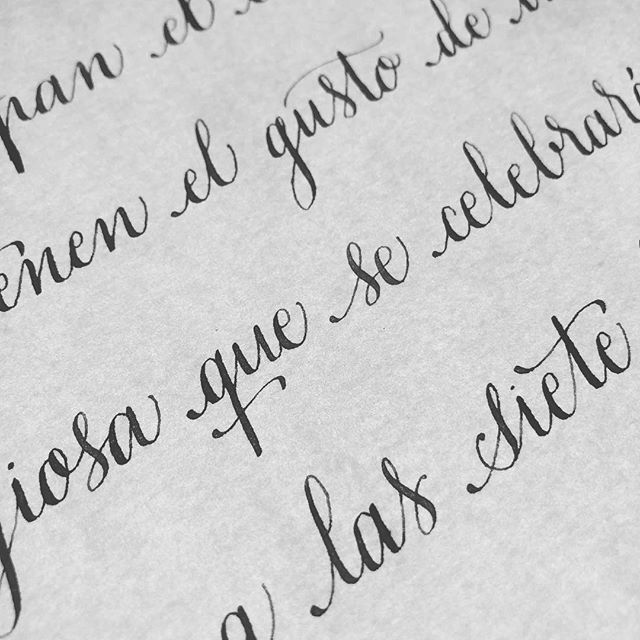 pan el
enen el gusto de
giosa que se celebrará
a las siete